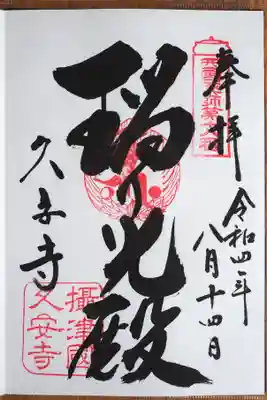 奉拝
令和四年
八月十四日
瑠り光殿
久安寺
攝津國
久安寺